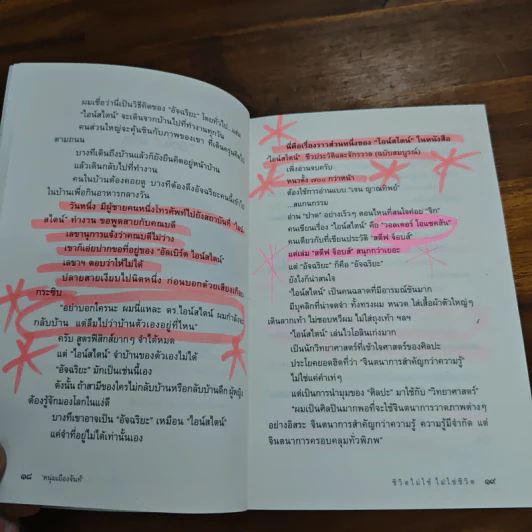 ผมเชื่อว่านี่เป็นวิธีคิดของ "อัจฉริยะ" โดยทั่วไป
"ไอน์สไตน์" จะเดินจากบ้านไปที่ทำงานทุกวัน
คนส่วนใหญ่จะคุ้นชินกับภาพของเขา ที่เดินครุ่นคิดไป
ตามถนน
บางทีเดินถึงบ้านแล้วก็ยังยืนคิดอยู่หน้าบ้าน
แล้วเดินกลับไปที่ทำงาน
คนในบ้านต้องคอยดู บางทีต้องดึงอัจฉริยะคนนี้เข้าไป
ในบ้านเพื่อกินอาหารกลางวัน
วันหนึ่ง มีผู้ชายคนหนึ่งโทรศัพท์ไปยังสถาบันที่ "ไอน์
สไตน์" ทำงาน ขอพูดสายกับคณบดี
เลขานุการแจ้งว่าคณบดีไม่ว่าง
เขาก็เอ่ยปากขอที่อยู่ของ "อัลเบิร์ต ไอน์สไตน์"
เลขาฯ ตอบว่าให้ไม่ได้
ปลายสายเงียบไปนิดหนึ่ง ก่อนบอกด้วยเสียงเกือบ
กระซิบ
"อย่าบอกใครนะ ผมนี่แหละ ดร.ไอน์สไตน์ ผมกำลังจะ
กลับบ้าน แต่ลืมไปว่าบ้านตัวเองอยู่ที่ไหน"
ครับ สูตรฟิสิกส์ยากๆ จำได้หมด
แต่ "ไอน์สไตน์" จำบ้านของตัวเองไม่ได้
"อัจฉริยะ" มักเป็นเช่นนี้เอง
ดังนั้น ถ้าสามีของใครไม่กลับบ้านหรือกลับบ้านดึก ผู้หญิง
ต้องรู้จักมองโลกในแง่ดี
บางทีเขาอาจเป็น "อัจฉริยะ" เหมือน "ไอน์สไตน์"
แค่จำที่อยู่ไม่ได้เท่านั้นเอง
๑๘ หนุ่มเมืองจันท์
นี่คือเรื่องราวส่วนหนึ่งของ "ไอน์สไตน์" ในหนังสือ
"ไอน์สไตน์" ชีวประวัติและจักรวาล (ฉบับสมบูรณ์)
เพิ่งอ่านจบครับ
หนาตั้ง ๗๒๐ กว่าหน้า
ต้องใช้การอ่านแบบ "เจน ญาณทิพย์"
...สแกนกรรม
อ่าน "ปาด" อย่างเร็วๆ ตอนไหนที่สนใจค่อย "จิก"
คนเขียนเรื่อง "ไอน์สไตน์" คือ "วอลเตอร์ ไอแซคสัน"
คนเดียวกับที่เขียนประวัติ "สตีฟ จ็อบส์"
แต่เล่ม "สตีฟ จ็อบส์" สนุกกว่าเยอะ
แต่ "อัจฉริยะ" ก็คือ "อัจฉริยะ"
ยังไงก็น่าสนใจ
"ไอน์สไตน์" เป็นคนฉลาดที่มีอารมณ์ขันมาก
มีบุคลิกที่น่าจดจำ ทั้งทรงผม หนวด ใส่เสื้อผ้าตัวใหญ่ๆ
เดินลากเท้า ไม่ชอบหวีผม ไม่ใส่ถุงเท้า ฯลฯ
"ไอน์สไตน์" เล่นไวโอลินเก่งมาก
เป็นนักวิทยาศาสตร์ที่เข้าใจเรื่องของศิลปะ
ประโยคยอดฮิตที่ว่า "จินตนาการสำคัญกว่าความรู้"
ไม่ใช่แค่คำเท่ๆ
แต่เป็นการนำมุมของ "ศิลปะ" มาใช้กับ "วิทยาศาสตร์"
"ผมเป็นศิลปินมากพอที่จะใช้จินตนาการวาดภาพต่างๆ
อย่างอิสระ จินตนาการสำคัญกว่าความรู้ ความรู้มีจำกัด แต่
จินตนาการครอบคลุมทั่วพิภพ"
ชีวิตไม่ใช่ ไม่ใช่ชีวิต ๑๙